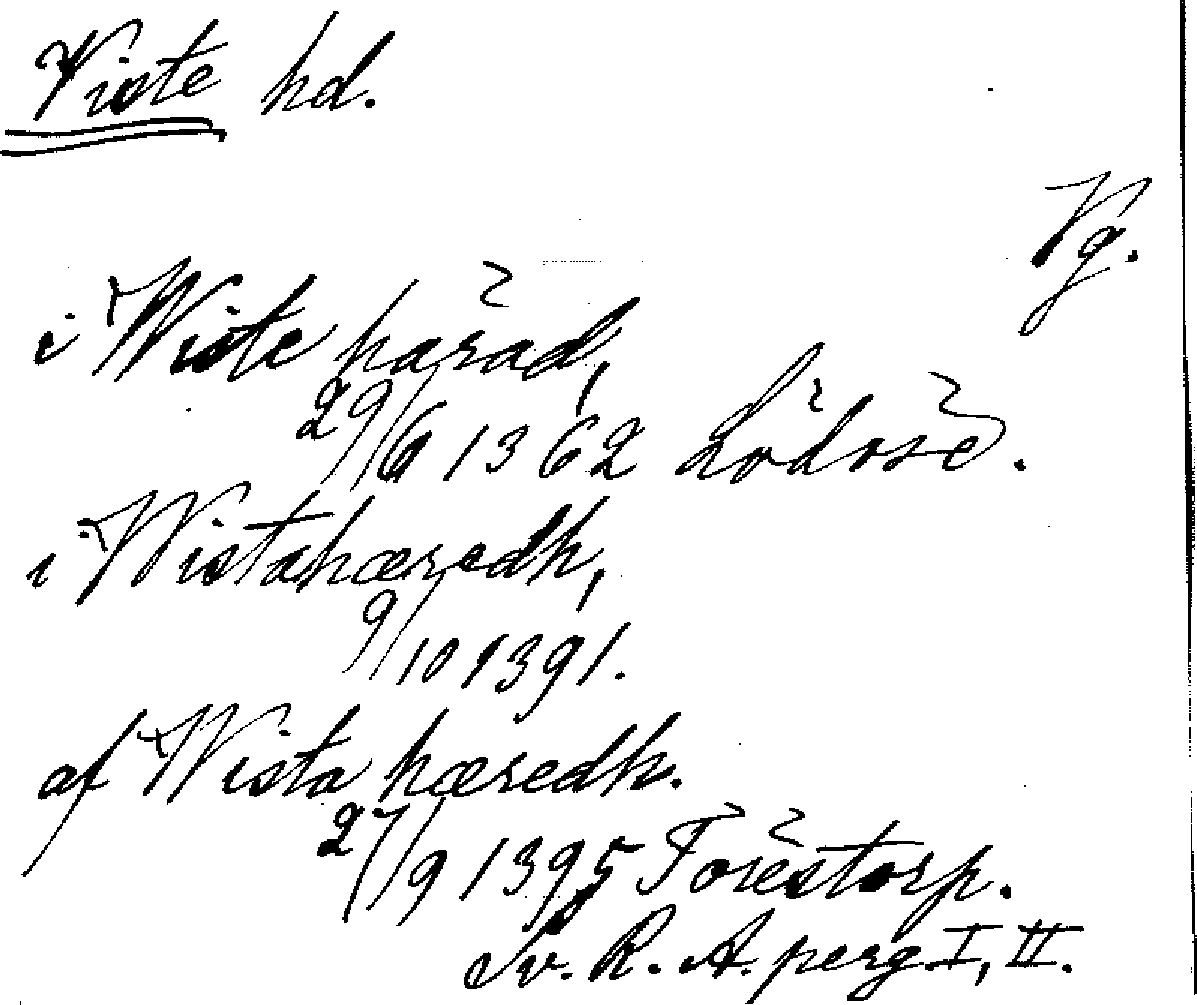 Viste hd.
Vg.
i Wiste härad,
29/6 1362 Lödose.
i Wistahæredh,
9/10 1391.
af Wista hæredh.
27/9 1395 Torestorp.
Sv. R. A. perg I, II.